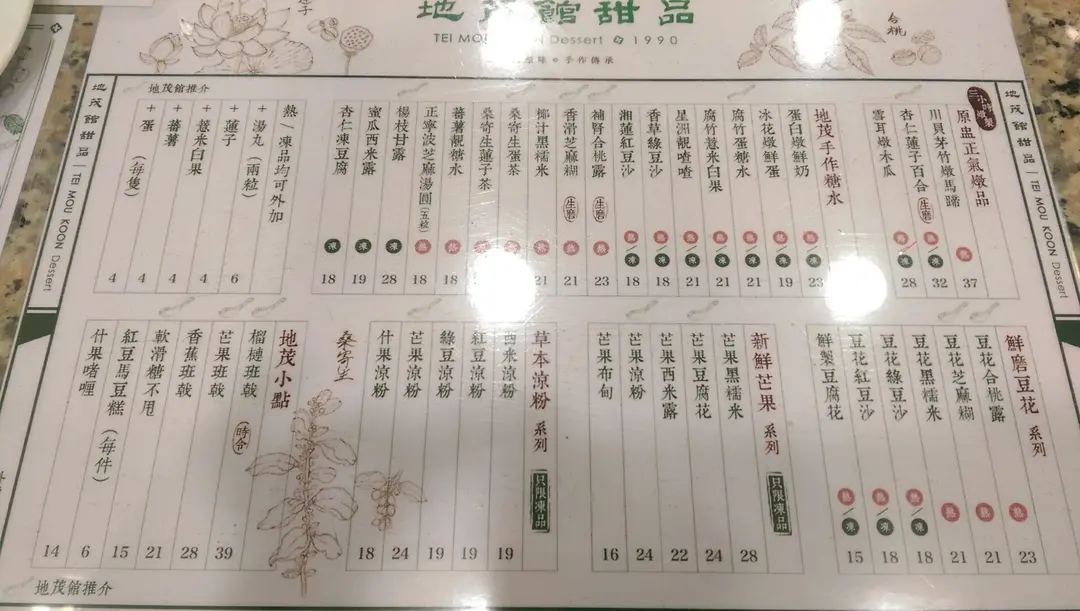 地茂館甜品
Dessert 1990
手作傳承
合桃
地茂館甜品 | TEI MOU KOON Dessert
三小時燉製
原盅正氣燉品
川貝茅竹燉馬蹄 熱 37
杏仁蓮子百合 (生磨) 熱/凍 32
雪耳燉木瓜 熱/凍 28
地茂手作糖水
蛋白燉鮮奶 熱/凍 23
冰花燉鮮蛋 熱/凍 19
腐竹蛋糖水 熱/凍 21
腐竹薏米白果 熱/凍 21
星洲靚喳喳 熱/凍 21
香草綠豆沙 熱/凍 18
湘蓮紅豆沙 熱/凍 18
補腎合桃露 (生磨) 熱 23
香滑芝麻糊 (生磨) 熱 21
椰汁黑糯米 熱 21
桑寄生蛋茶 熱
桑寄生蓮子茶 熱
蕃薯靚糖水 熱 18
正寧波芝麻湯圓 (五粒) 熱 18
楊枝甘露 凍 28
蜜瓜西米露 凍 19
杏仁凍豆腐 凍 18
熱/凍品均可外加
+湯丸 (兩粒) 6
+蓮子 4
+薏米白果 4
+蕃薯 4
+蛋 (每隻) 4
地茂館推介
地茂館甜品 | TEI MOU KOON Dessert
鮮磨豆花 系列
豆花合桃露 熱 23
豆花芝麻糊 熱 21
豆花黑糯米 熱 21
豆花綠豆沙 熱/凍 18
豆花紅豆沙 熱/凍 18
鮮製豆腐花 熱/凍 15
新鮮芒果 系列 只限凍品
芒果黑糯米 28
芒果豆腐花 24
芒果西米露 22
芒果涼粉 24
芒果布甸 16
草本涼粉 系列 只限凍品
西米涼粉 19
紅豆涼粉 19
綠豆涼粉 19
芒果涼粉 24
什果涼粉 18
桑寄生
地茂小點
榴槤班戟 (時令) 39
芒果班戟 28
香蕉班戟 21
軟滑糖不甩 15
紅豆馬豆糕 (每件) 6
什果啫喱 14
地茂館推介